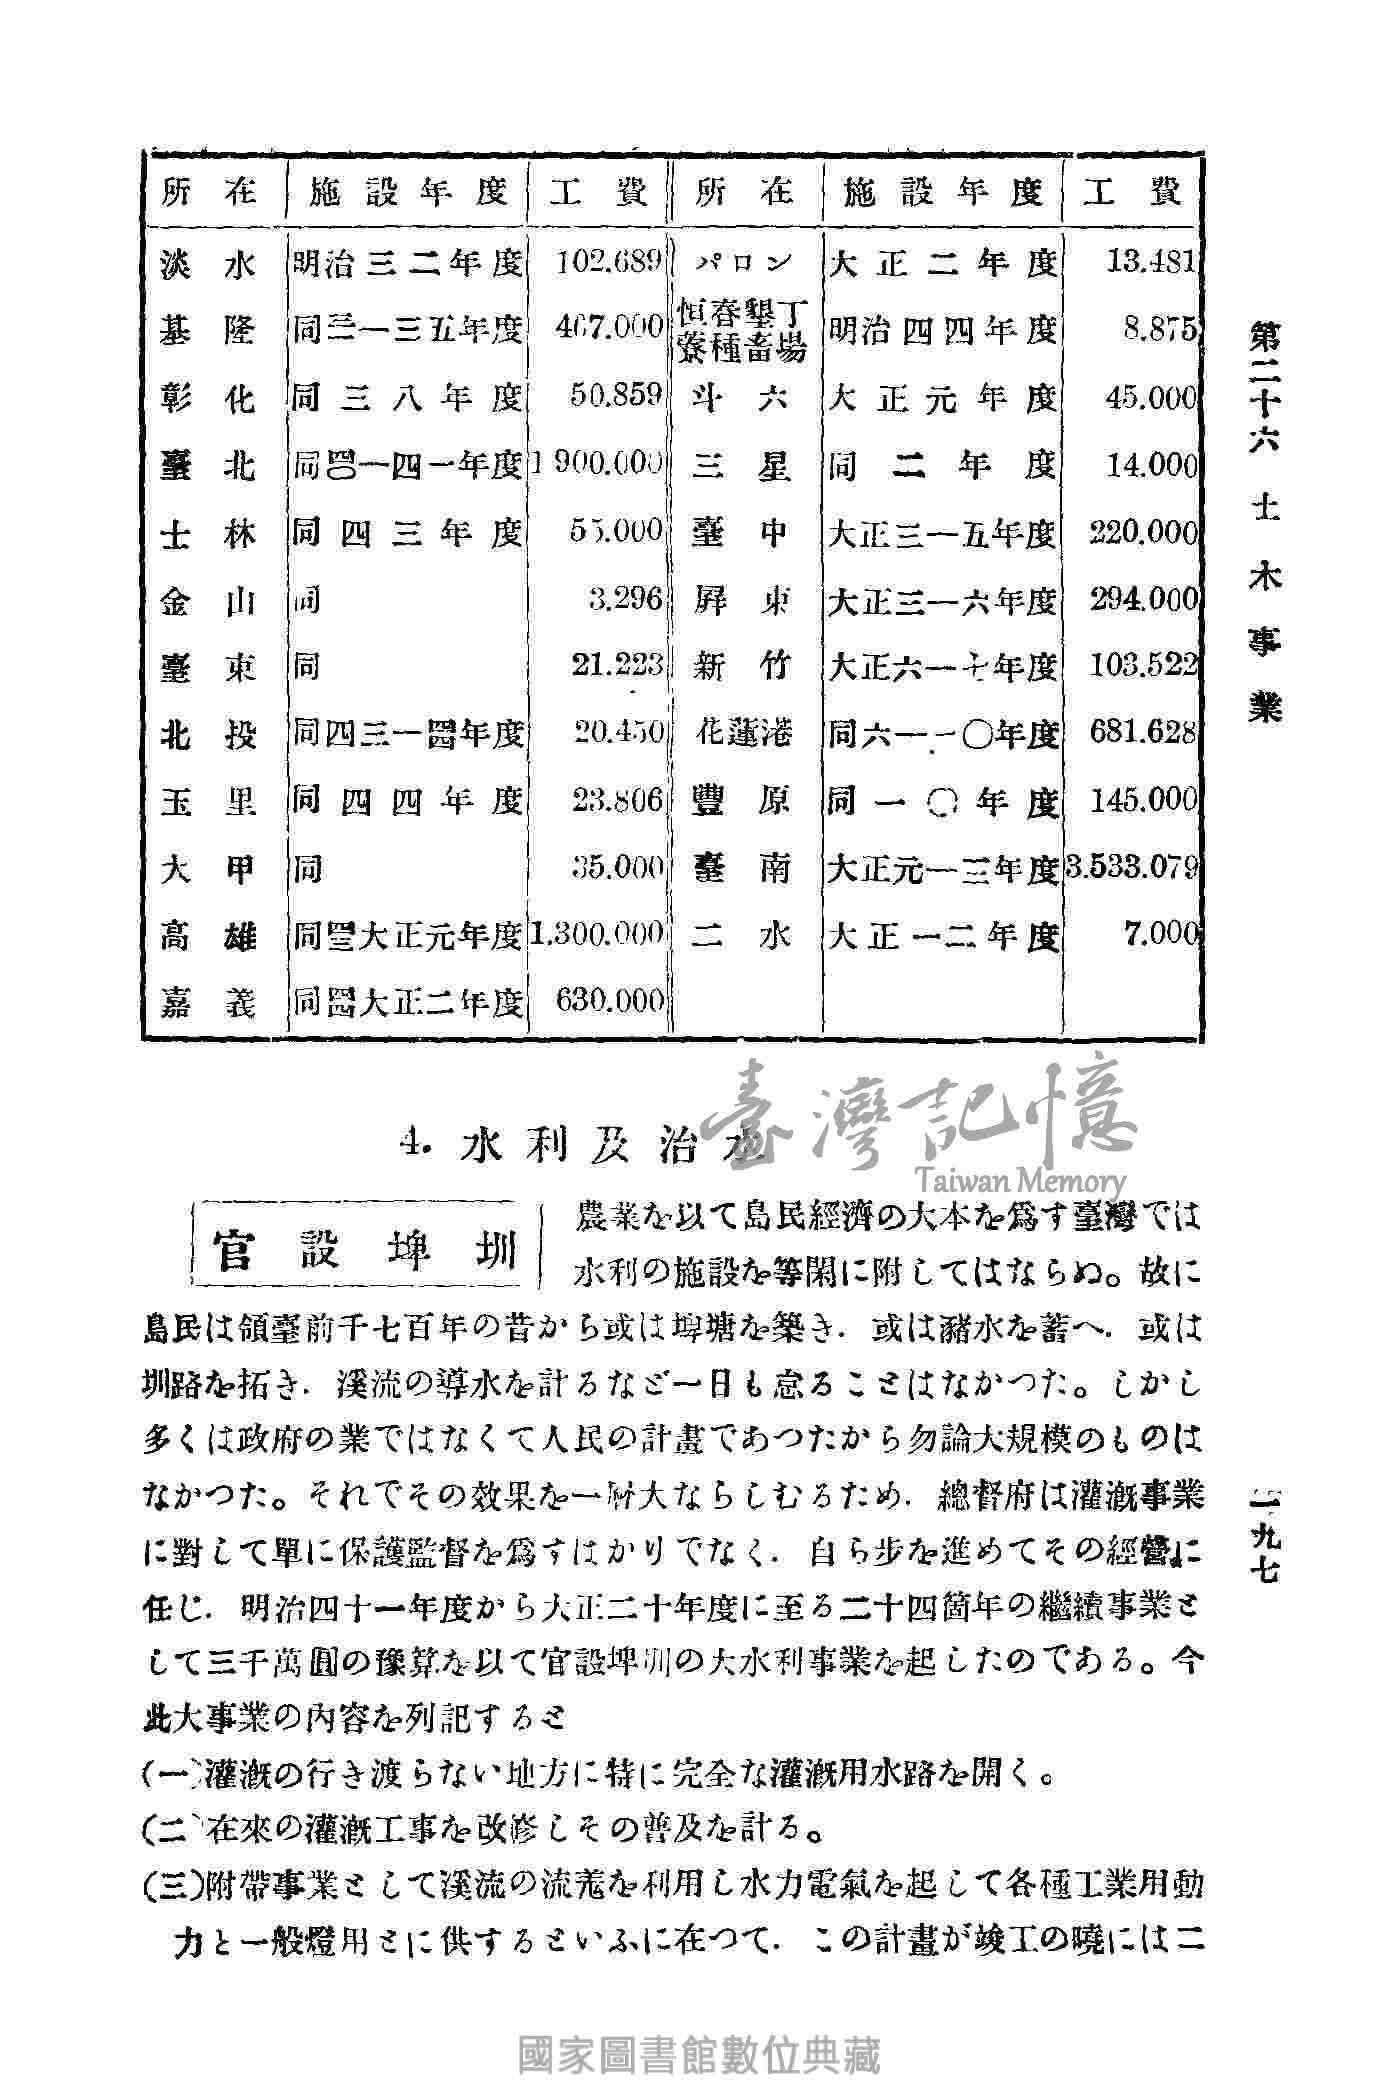 所在 施設年度 工費 所在 施設年度 工費
淡水 明治三二年度 102.689 パロン 大正二年度 13.481
基隆 同三一三五年度 467.000 恒春墾丁寮種畜場 明治四四年度 8.875
彰化 同三八年度 50.859 斗六 大正元年度 45.000
臺北 同四〇一四一年度 1 900.000 三星 同二年度 14.000
士林 同四三年度 55.000 臺中 大正三一五年度 220.000
金山 同 3.296 屛東 大正三一六年度 294.000
臺東 同 21.223 新竹 大正六一七年度 103.522
北投 同四三一四四年度 20.450 花蓮港 同六一一〇年度 681.628
玉里 同四四年度 23.806 豐原 同一〇年度 145.000
大甲 同 35.000 臺南 大正元一三年度 3.533.079
高雄 同大正元年度 1.300.000 二水 大正一二年度 7.000
嘉義 同四四大正二年度 630.000
第二十六 土木事業
一九七
4. 水利及治水
臺灣記憶
Taiwan Memory
官設埤圳
農業を以て島民經濟の大本を爲す臺灣では
水利の施設を等閑に附してはならぬ。故に
島民は領臺前千七百年の昔から或は埤塘を築き．或は瀦水を蓄へ．或は
圳路を拓き．溪流の導水を計るなど一日も怠ることはなかつた。しかし
多くは政府の業ではなくて人民の計畫であつたから勿論大規模のものは
なかつた。それでその效果を一層大ならしむるため．總督府は灌漑事業
に對して單に保護監督を爲すばかりでなく．自ら步を進めてその經營に
任じ．明治四十一年度から大正二十年度に至る二十四箇年の繼續事業と
して三千萬圓の豫算を以て官設埤圳の大水利事業を起したのである。今
此大事業の內容を列記すると
(一)灌漑の行き渡らない地方に特に完全な灌漑用水路を開く。
(二)在來の灌漑工事を改修しその普及を計る。
(三)附帶事業として溪流の流を利用し水力電氣を起して各種工業用動
力と一般燈用とに供するといふに在つて．この計畫が竣工の曉には二
國家圖書館數位典藏